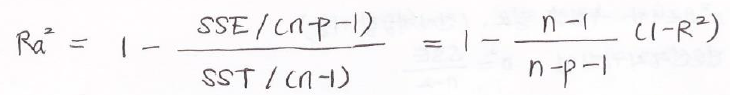 Ra² = 1 - SSE/(n-p-1) / SST/(n-1) = 1 - n-1 / n-p-1 (1-R²)